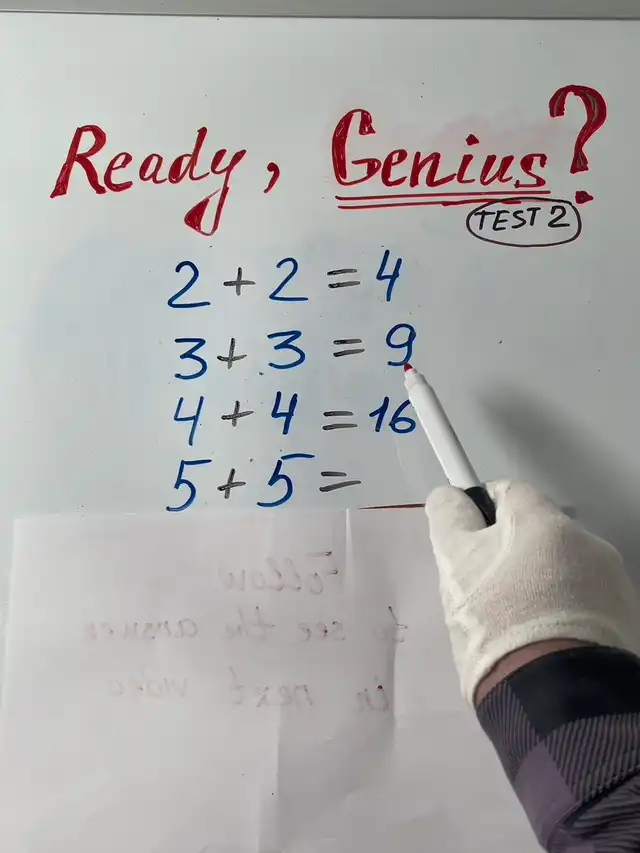 Ready, Genius?
TEST 2
2 + 2 = 4
3 + 3 = 9
4 + 4 = 16
5 + 5 =
Follow
to see the answer
in next video